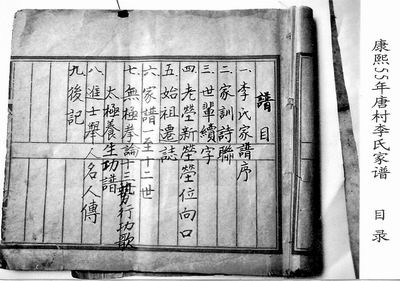 康熙55年唐村李氏家谱 目录
譜目
一.李氏家譜序
二.家訓詩聯
三.世輩續字
四.老塋新塋塋位向口
五.始祖遷誌
六.家譜一至十二世
七.無極拳論十三勢行功歌
太極養生功譜
八.進士舉人名人傳
九.後記